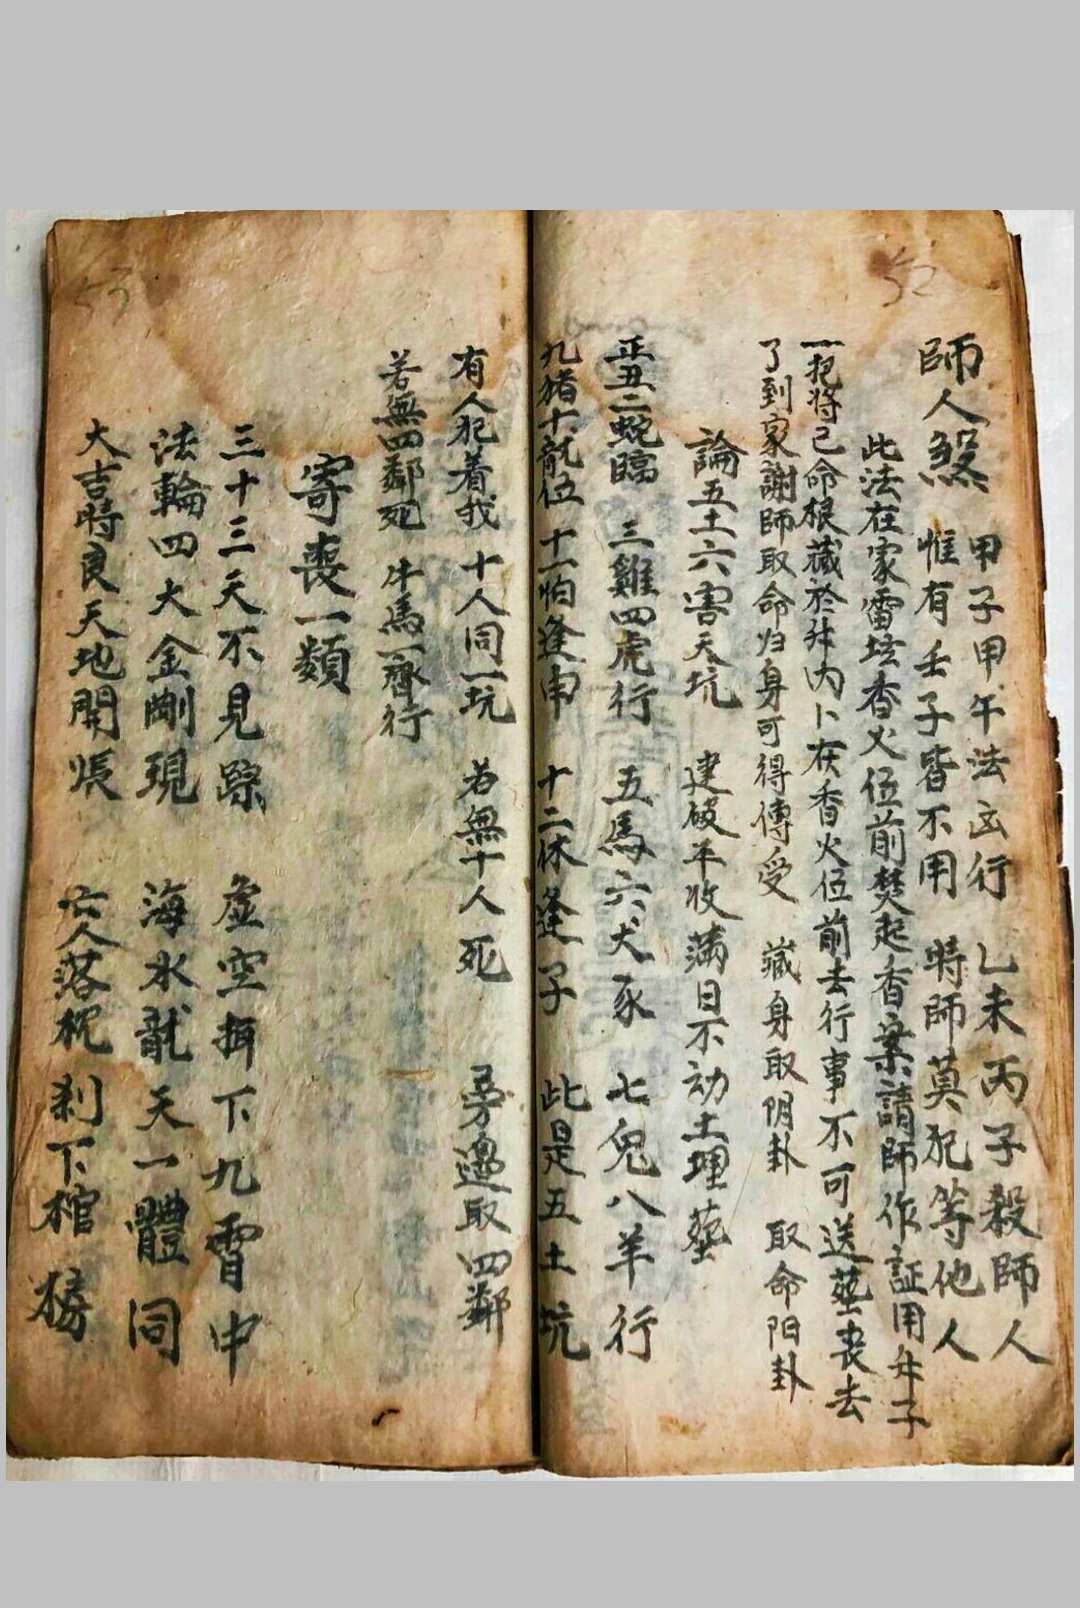 52
師人煞 甲子甲午法云行 乙未丙子殺師人
惟有壬子皆不用 時師莫犯等他人
此法在家雷坛香火位前焚起香案請師作証用舛子
一把將己命根藏於舛内卜在香火位前去行事不可送塟喪去
了到家謝師取命归身可得傳受 藏身取阴卦 取命阳卦
論五土六害天坑 建破平收滿日不动土埋塟
正丑二蛇臨 三雞四虎行 五馬六犬豕 七兔八羊行
九猪十龍位 十一怕逢申 十二休逢子 此是五土坑
53
有人犯着我 十人同一坑 若無十人死 旁邊取四鄰
若無四鄰死 牛馬一齊行
寄喪一類
三十三天不見踪 虚空押下九霄中
法輪四大金剛現 海水龍天一體同
大吉時良天地開張 亡人落枕 刹下棺